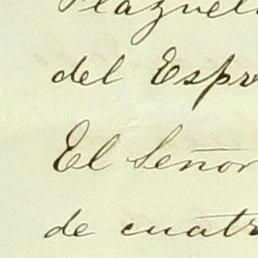 Plazuel
del Espr
El Señor
de cuatr